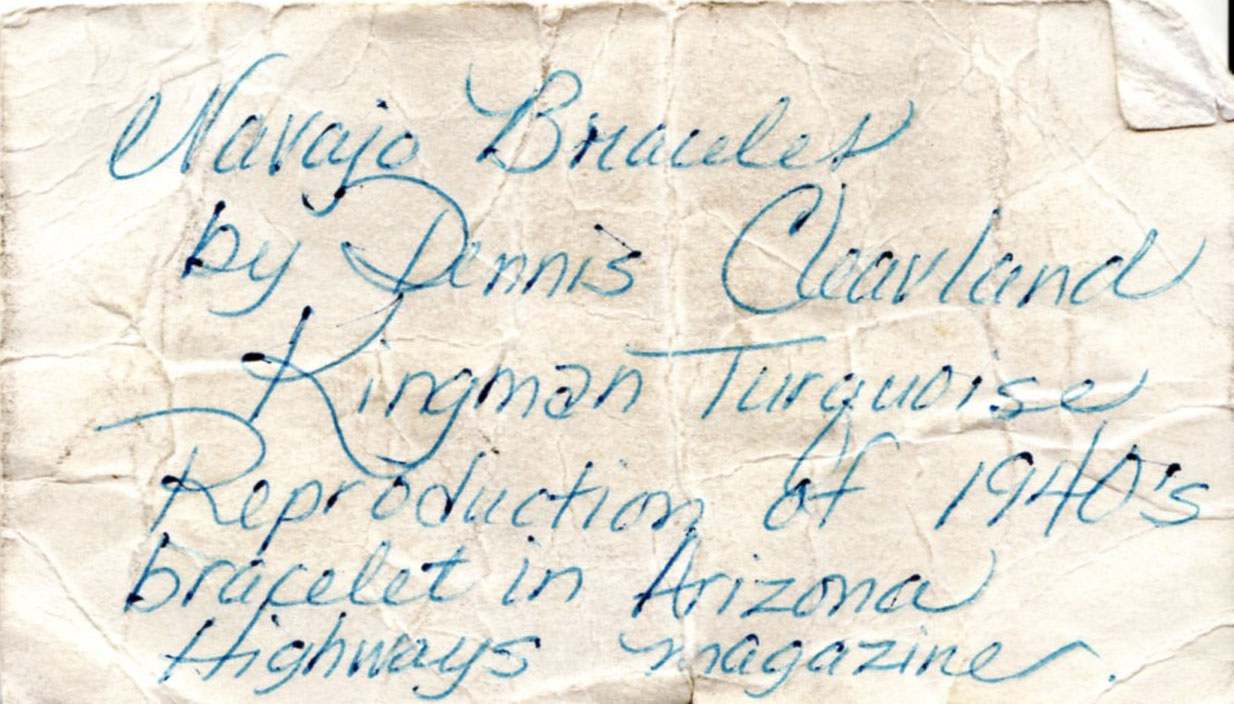 Navajo Bracelet
by Dennis Cleavland
Kingman Turquoise
Reproduction of 1940's
bracelet in Arizona
Highways magazine.